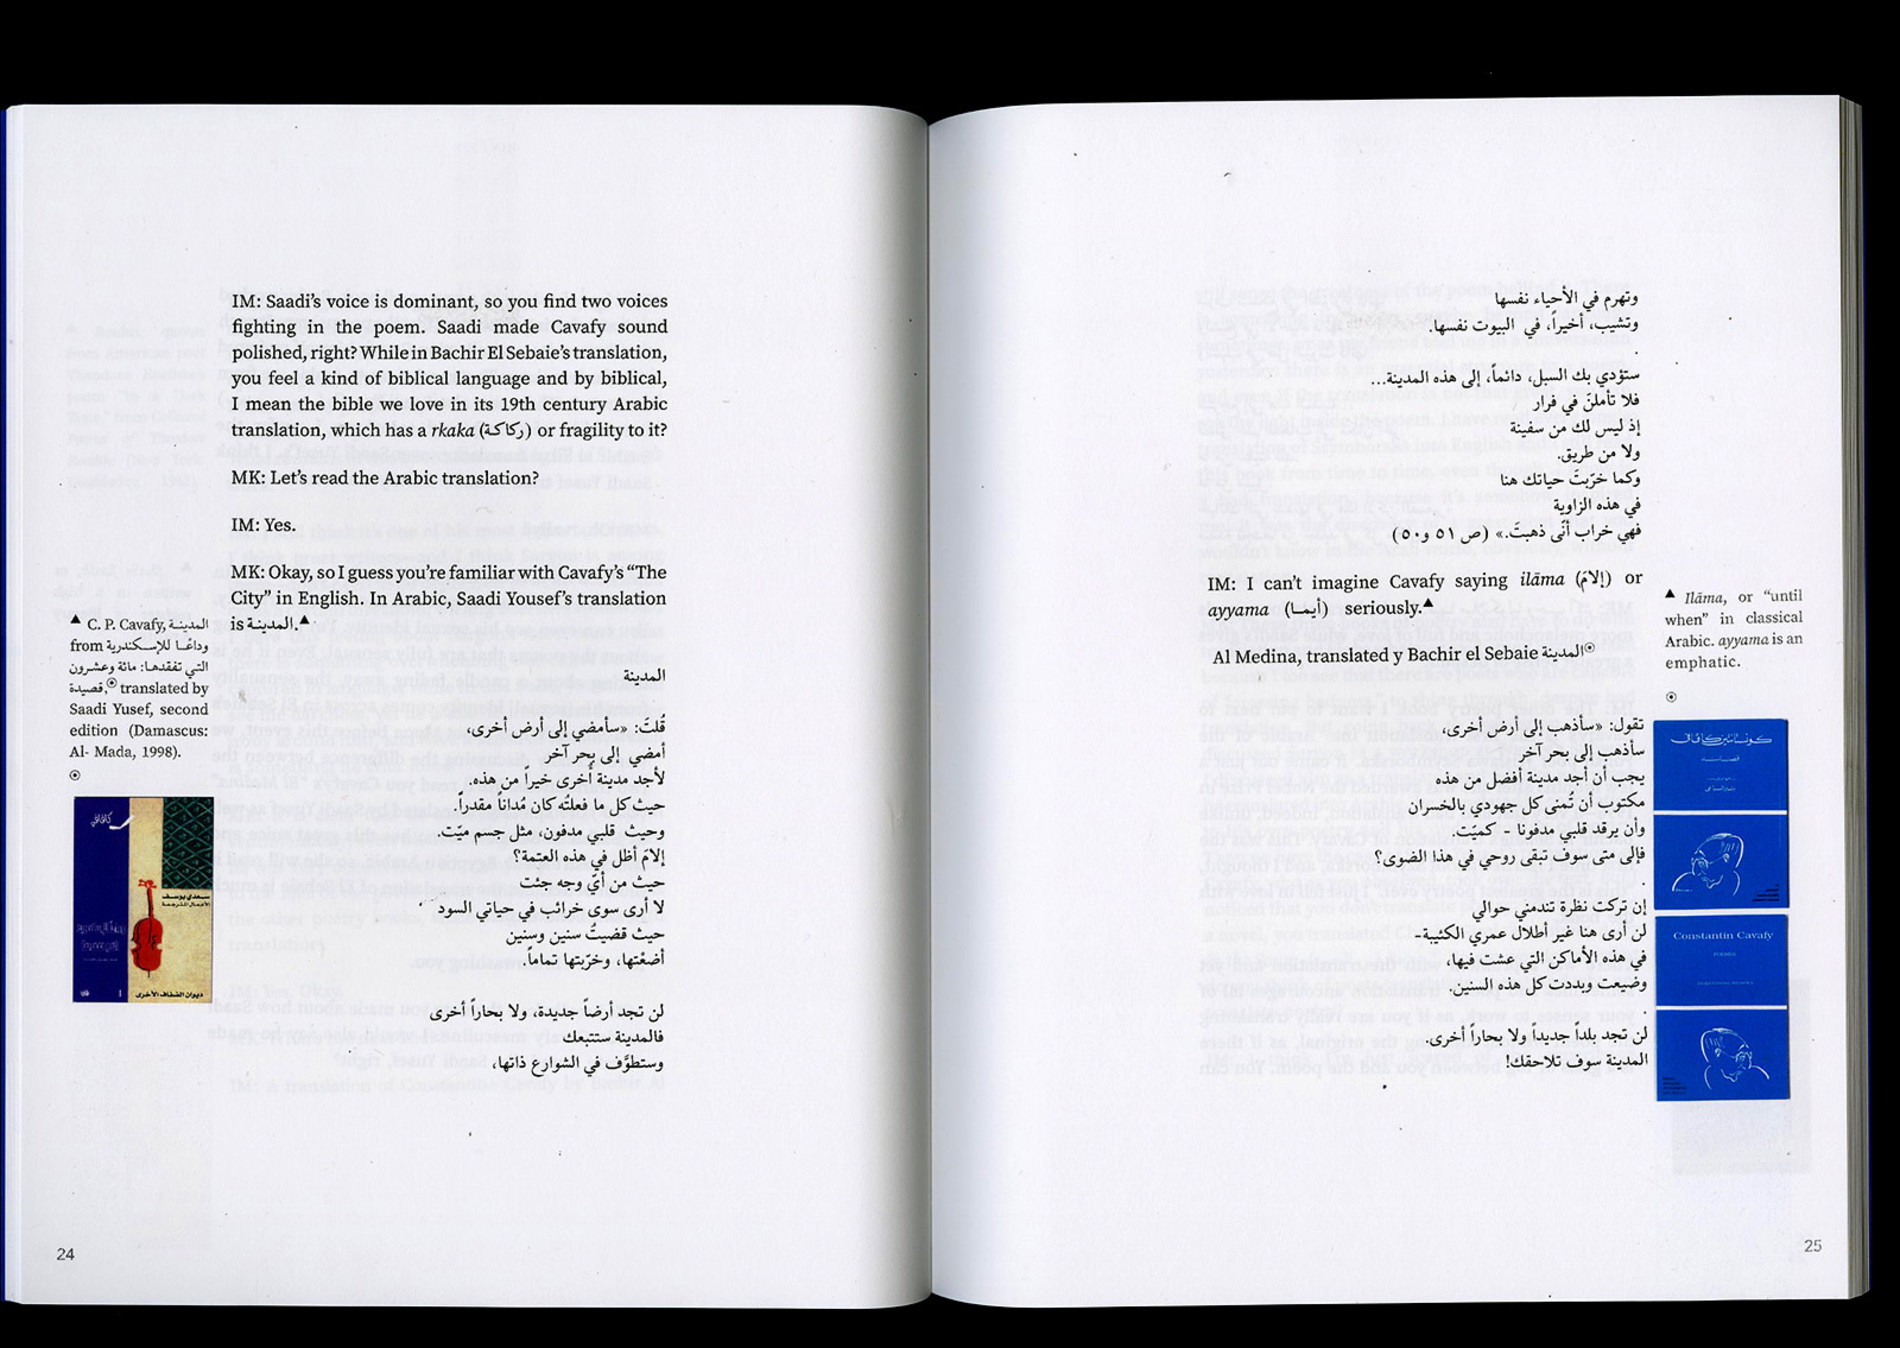 IM: Saadi’s voice is dominant, so you find two voices
fighting in the poem. Saadi made Cavafy sound
polished, right? While in Bachir El Sebaie’s translation,
you feel a kind of biblical language and by biblical,
I mean the bible we love in its 19th century Arabic
translation, which has a rkaka (ركاكة) or fragility to it?
MK: Let’s read the Arabic translation?
IM: Yes.
MK: Okay, so I guess you’re familiar with Cavafy’s “The
City” in English. In Arabic, Saadi Yousef’s translation
is المدينة.▲
▲ C. P. Cavafy, المدينة
from وداعًا للإسكندرية
التي تفقدها: مائة وعشرون
قصيدة,⦿ translated by
Saadi Yusef, second
edition (Damascus:
Al- Mada, 1998).
⦿
سعدي يوسف
الأعمال المترجمة
ديوان الضفاف الأخرى
المدينة
قُلتَ: «سأمضي إلى أرض أخرى،
أمضي إلى بحر آخر
لأجد مدينة أخرى خيراً من هذه.
حيث كل ما فعلته كان مُداناً مقدراً.
وحيث قلبي مدفون، مثل جسم ميّت.
إلامَ أظل في هذه العتمة؟
حيث من أيّ وجه جئت
لا أرى سوى خرائب في حياتي السود
حيث قضيتُ سنين وسنين
أضعْتها، وخرّبتها تماماً.
لن تجد أرضاً جديدة، ولا بحاراً أخرى
فالمدينة ستتبعك
وستطوَّف في الشوارع ذاتها،
24
وتهرم في الأحياء نفسها
وتشيب، أخيراً، في البيوت نفسها.
.
ستؤدي بك السبل، دائماً، إلى هذه المدينة...
فلا تأملنَ في فرار
إذ ليس لك من سفينة
ولا من طريق.
وكما خرّبتَ حياتك هنا
في هذه الزاوية
فهي خراب أنّى ذهبتَ.» (ص ٥١ و٥٠)
IM: I can’t imagine Cavafy saying ilāma (إلامَ) or
ayyama (أيما) seriously.▲
Al Medina, translated y Bachir el Sebaie المدينة⦿
▲ Ilāma, or “until
when” in classical
Arabic. ayyama is an
emphatic.
⦿
تقول: «سأذهب إلى أرض أخرى،
سأذهب إلى بحر آخر
يجب أن أجد مدينة أفضل من هذه
مكتوب أن تُمنى كل جهودي بالخسران
وأن يرقد قلبي مدفونا - كميّت.
فإلى متى سوف تبقى روحي في هذا الضوى؟
.
إن تركت نظرة تندمني حوالي
لن أرى هنا غير أطلال عمري الكئيبة-
في هذه الأماكن التي عشت فيها،
وضيعت وبددت كل هذه السنين.
.
لن تجد بلداً جديداً ولا بحاراً أخرى.
المدينة سوف تلاحقك!
Constantin Cavafy
25